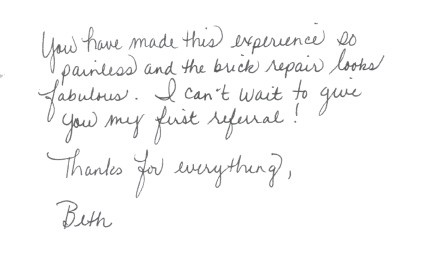 You have made this experience so
painless and the brick repair looks
fabulous. I can't wait to give
you my first referral!
Thanks for everything,
Beth